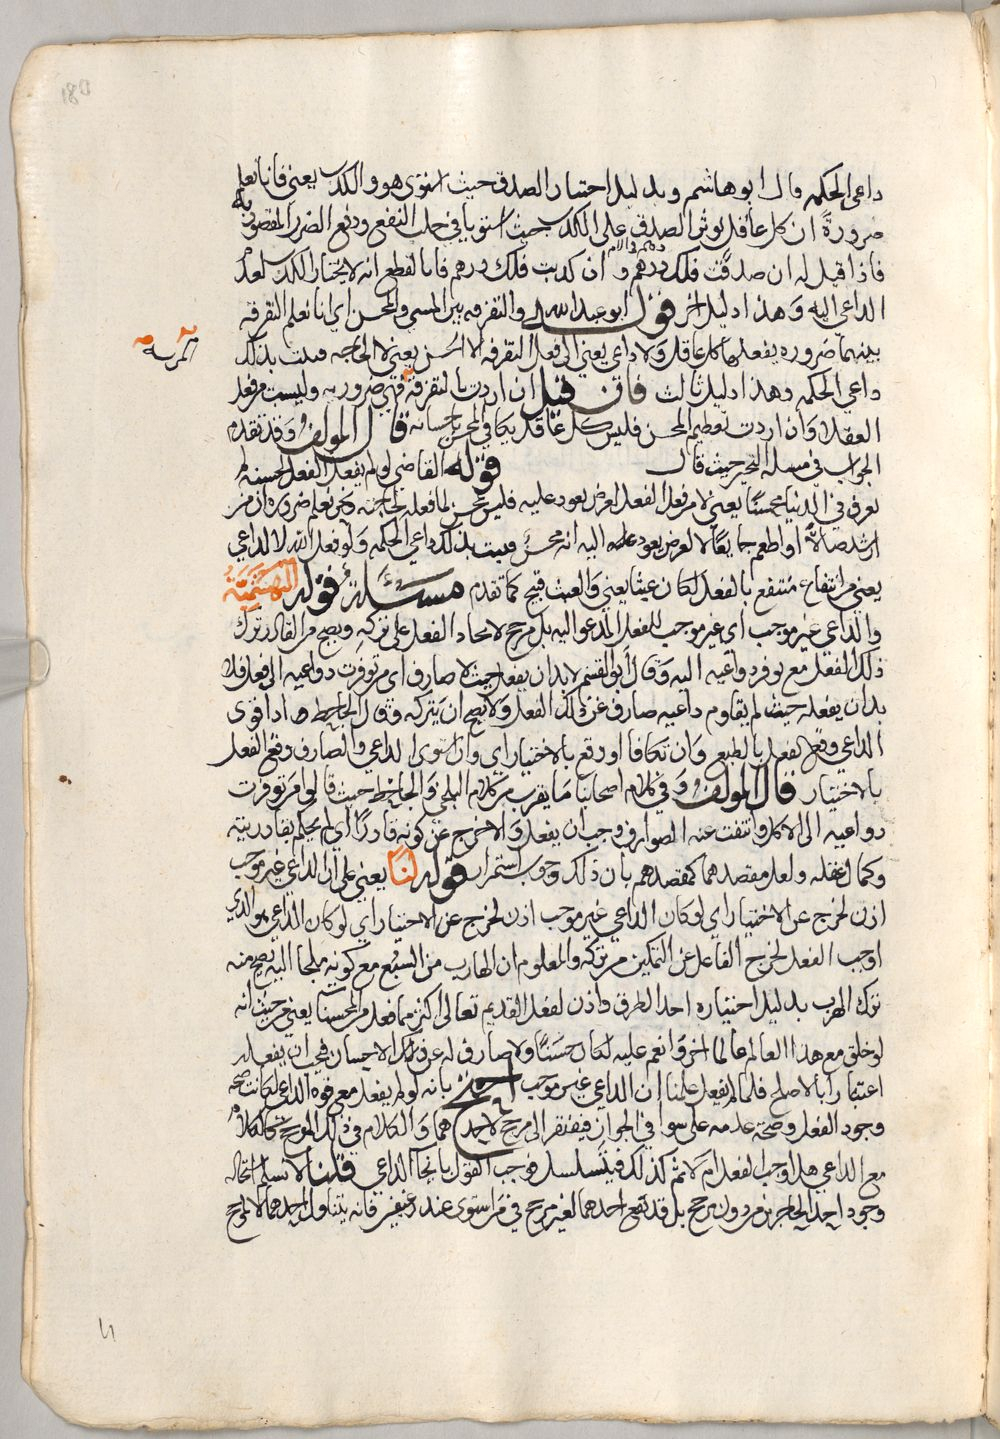 داعي الحكمه قال ابو هاشم وبدليل اختيار الصدق حيث استوى هو والكذب يعني فانا نعلم
ضرورةً ان كل عاقل يوثر الصدق على الكذب حيث استويا في جلب النفع ودفع الضرر المقصود به
فاذا قيل له ان صدقت فلك درهم وان كذبت فلك درهم فانا نقطع انه لا يختار الكذب لعدم
الداعي اليه وهذا دليل اخر قول ابو عبد الله والتفرقه بين المسي والمحسن اي انا نعلم التفرقة
بينهما ضروره يفعلها كل عاقل ولا داعي يعني الى فعل التفرقه الا الحسن يعني لا الحاجه فثبت بذلك
داعي الحكمه وهذا دليل ثالث فان قيل ان اردت بالتفرقة فهي ضروريه وليست من فعل
العقلا وان اردت تعظيم المحسن فليس كل عاقل يكافي المحسن باحسانه قال المولف وقد تقدم
الجواب في مسله التخير حيث قال قوله القاضي لو لم يفعل الفعل لحسنه لم
نعرف في الدنيا محسنًا يعني لان من فعل الفعل لغرض يعود عليه فليس بمحسن لما فعله لحاجته ونحن نعلم ضروره ان من
ارشد ضالاً او اطعم جايعًا لا لغرض يعود عليه اليه انه محسن فثبت بذلك داعي الحكمه ولو فعل الله لا لداعي
يعني من انتفاع منتفع بالفعل لكان عبثا يعني والعبث قبيح كما تقدم مسئلة قوله البهشمية
والداعي غير موجب اي غير موجب للفعل المدعو اليه بل مرجح لايجاد الفعل على تركه ويصح من القادر ترك
ذلك الفعل مع توفر دواعيه اليه وقال ابو القسم لا بد ان يفعل حيث لا صارف اي من توفرت دواعيه الى فعل فلا
بد ان يفعله حيث لم يقاوم داعيه صارف عن ذلك الفعل ولا يصح ان يتركه وقال الجاحظ اذا قوى
الداعي وقع الفعل بالطبع وان تكافا وقع بالاختيار اي وان استوى الداعي والصارف وقع الفعل
بالاختيار قال المولف وفي كلام اصحابنا ما يقرب من كلام البلخي والجاحظ حيث قالوا من توفرت
دواعيه الى الاكل وانتفت عنه الصوارف وجب ان يفعل والا خرج عن كونه قادرًا اي لم يحكم بقادريته
وكمال عقله ولعل مقصدهما كمقصدهم بان ذلك وجوب استمرار قوله لنا يعني على ان الداعي غير موجب
اذن لخرج عن الاختيار اي لو كان الداعي غير موجب اذن لخرج عن الاختيار اي لو كان الداعي هو الذي
اوجب الفعل لخرج الفاعل عن التمكين من تركه والمعلوم ان الهارب من السبع مع كونه ملجا اليه يصح منه
ترك الهرب بدليل اختياره احدا الطرق واذن لفعل القديم تعالى اكثر مما فعل من المحسنات يعني من حيث انه
لو خلق مع هذا العالم عالما اخر وانعم عليه لكان حسنًا ولا صارف له عن ذلك الاحسان فيجب ان يفعله
اعتبارا بالاصلح فلما لم يفعل علمنا ان الداعي غير موجب احتج بانه لو لم يفعل مع قوة الداعي لكانت صحه
وجود الفعل وصحة عدمه على سوا في الجواز فيفتقر الى مرجح لاحدهما والكلام في ذلك المرجح كالكلام
مع الداعي هل اوجب الفعل ام لا ثم كذلك فيتسلسل فوجب القول بايجاب الداعي قلنا لا نسلم استحاله
وجود احد الجايزين من دون مرجح بل قد يقع احدهما لغير مرجح في من استوى عنده رغيفين فانه يتناول احدهما لا لمرجح